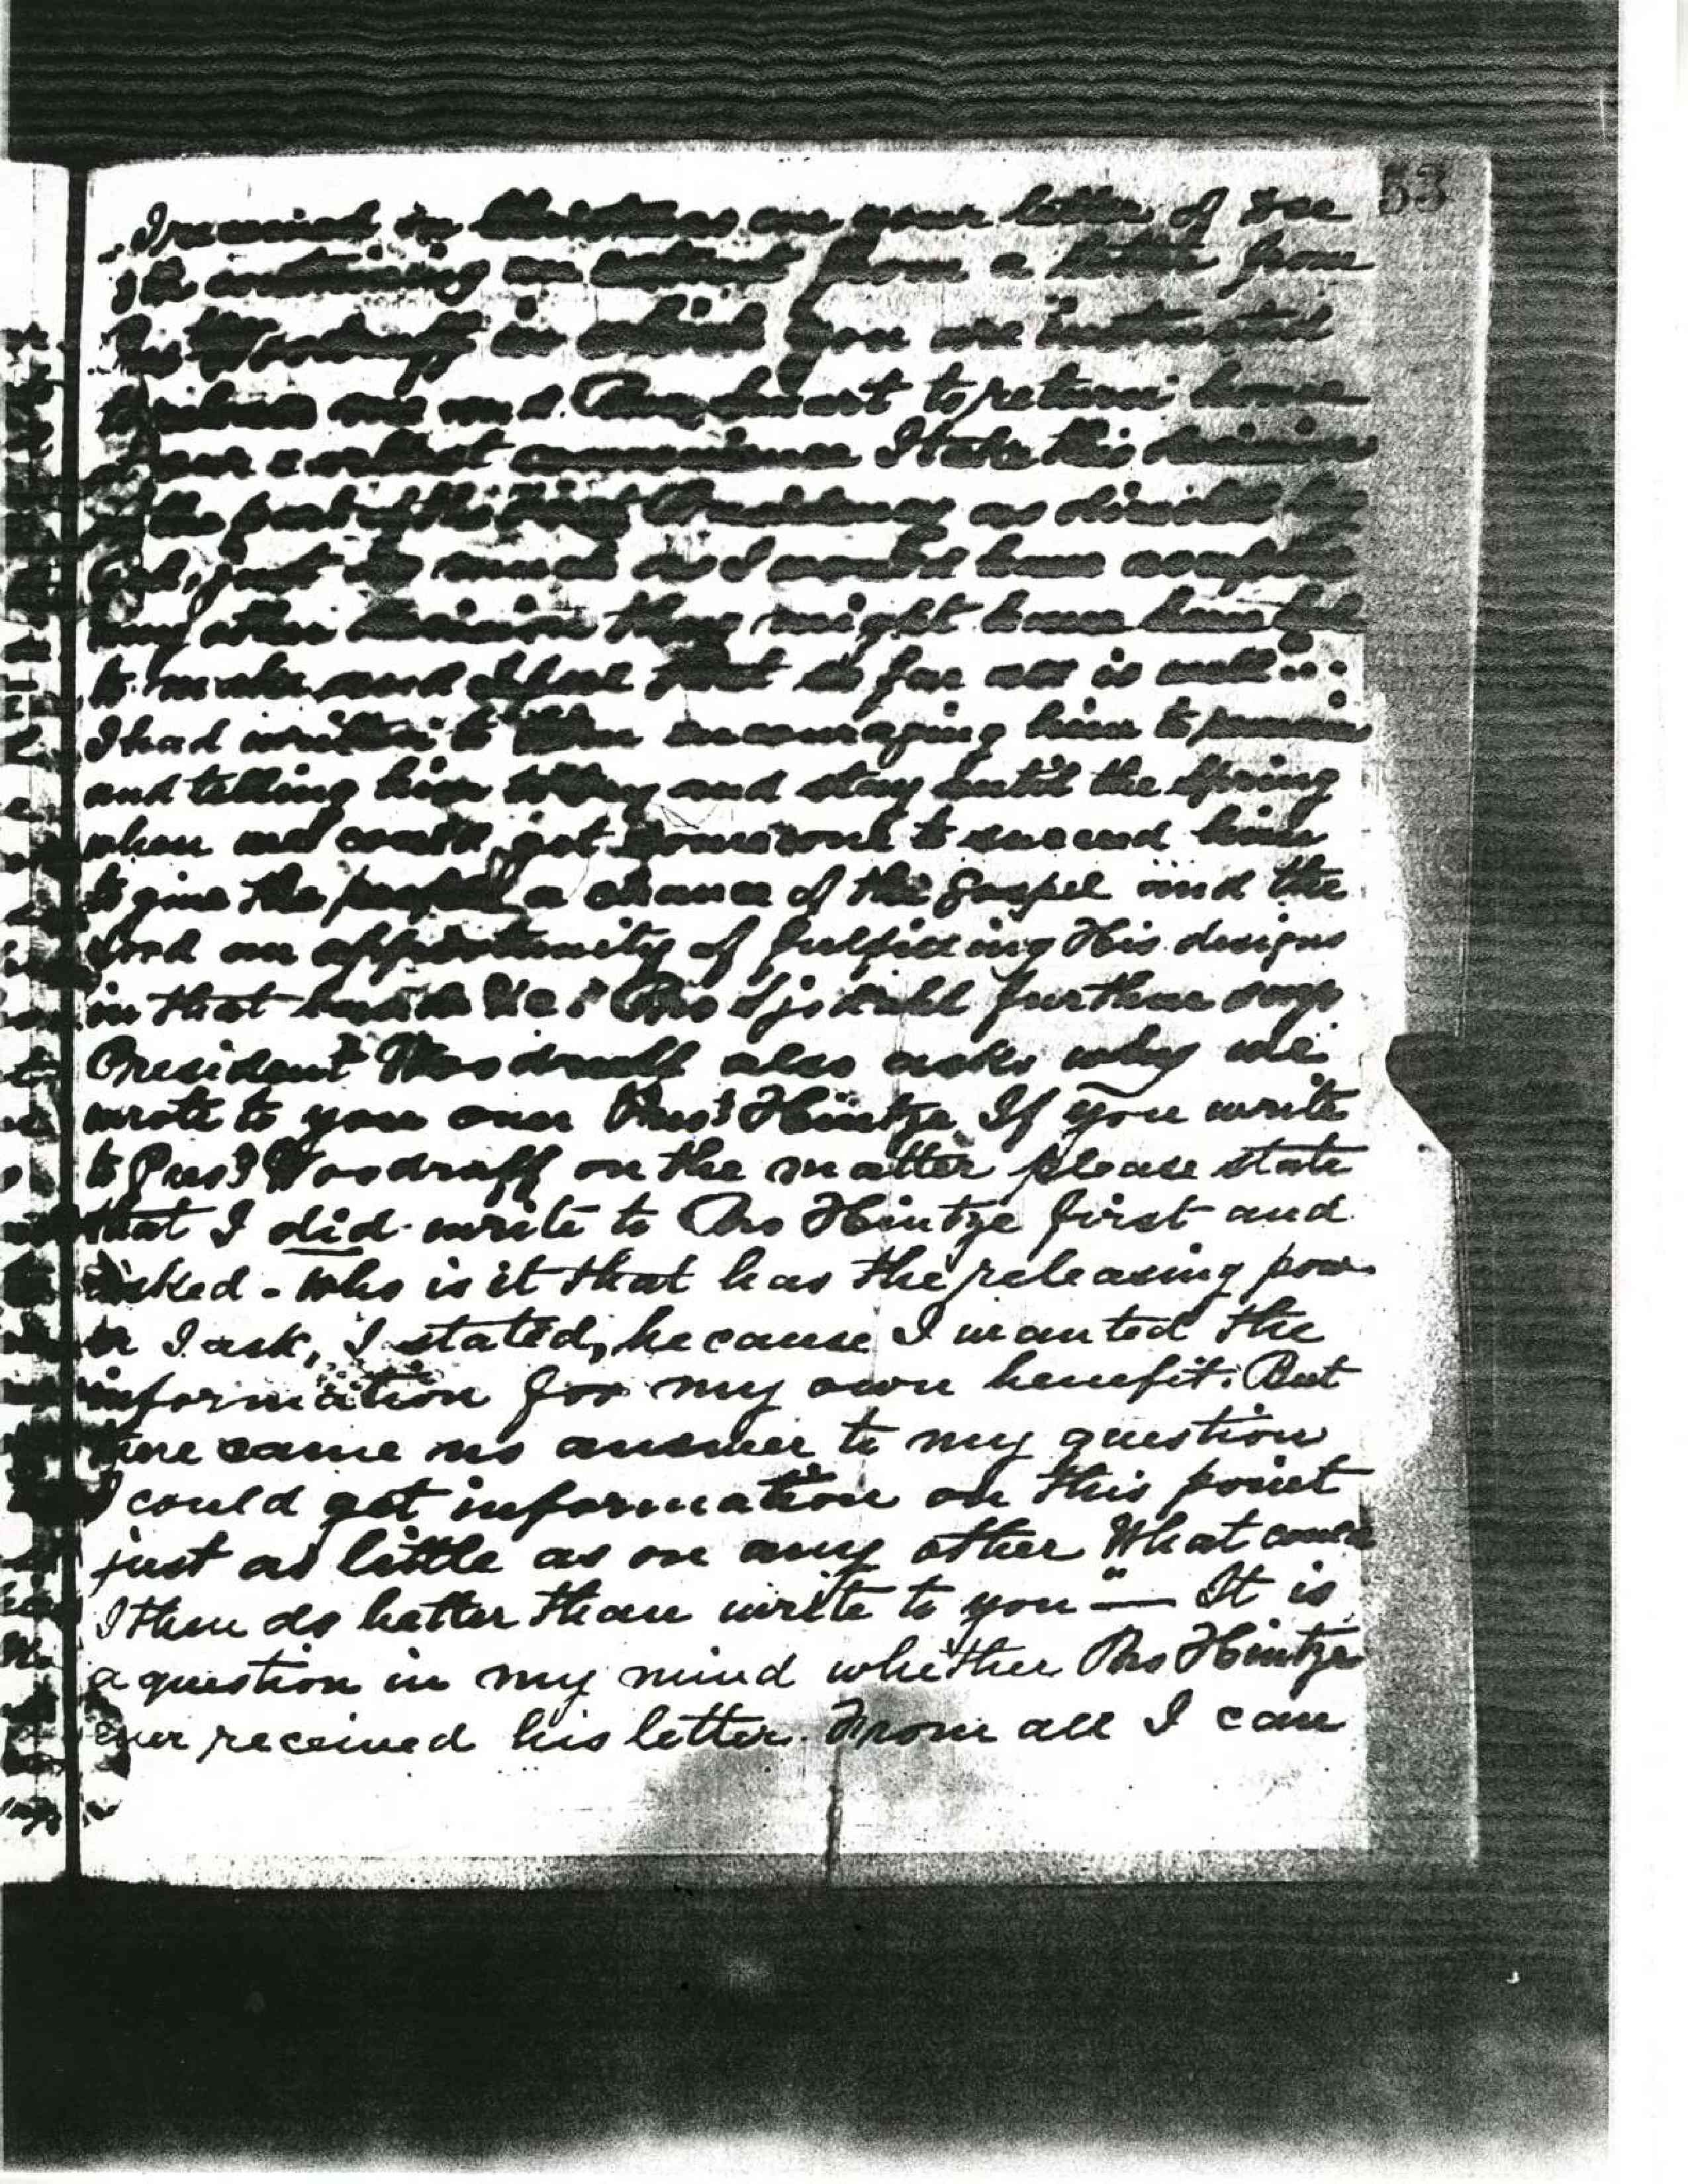 53
I received in Christmas eve your letter of Dec
containing an extract from a letter from
Woodruff in which you are instructed
to release me and to return home
at our earliest convenience I take this decision
the part of the First Presidency as directed by
God, just as much as I would have accepted
any other decision they might have
to make and I feel that so far all is well
I had written to him encouraging him to remain
and telling him to try and stay until the Spring
when we could get someone to succeed him
to give the people a chance of the Gospel and the
Lord an opportunity of fulfilling His designs
in that land &c: Bro Sjodahl further says
President Woodruff also asks why we
wrote to you over Pres't Hintze If you write
to Pres't Woodruff on the matter please state
that I did write to Bro Hintze first and
asked - Who is it that has the releasing pow
er I ask, I stated, because I wanted the
information for my own benefit. But
there came no answer to my question
I could get information on this point
just as little as on any other What could
I then do better than write to you" — It is
a question in my mind whether Bro Hintze
ever received his letter. From all I can